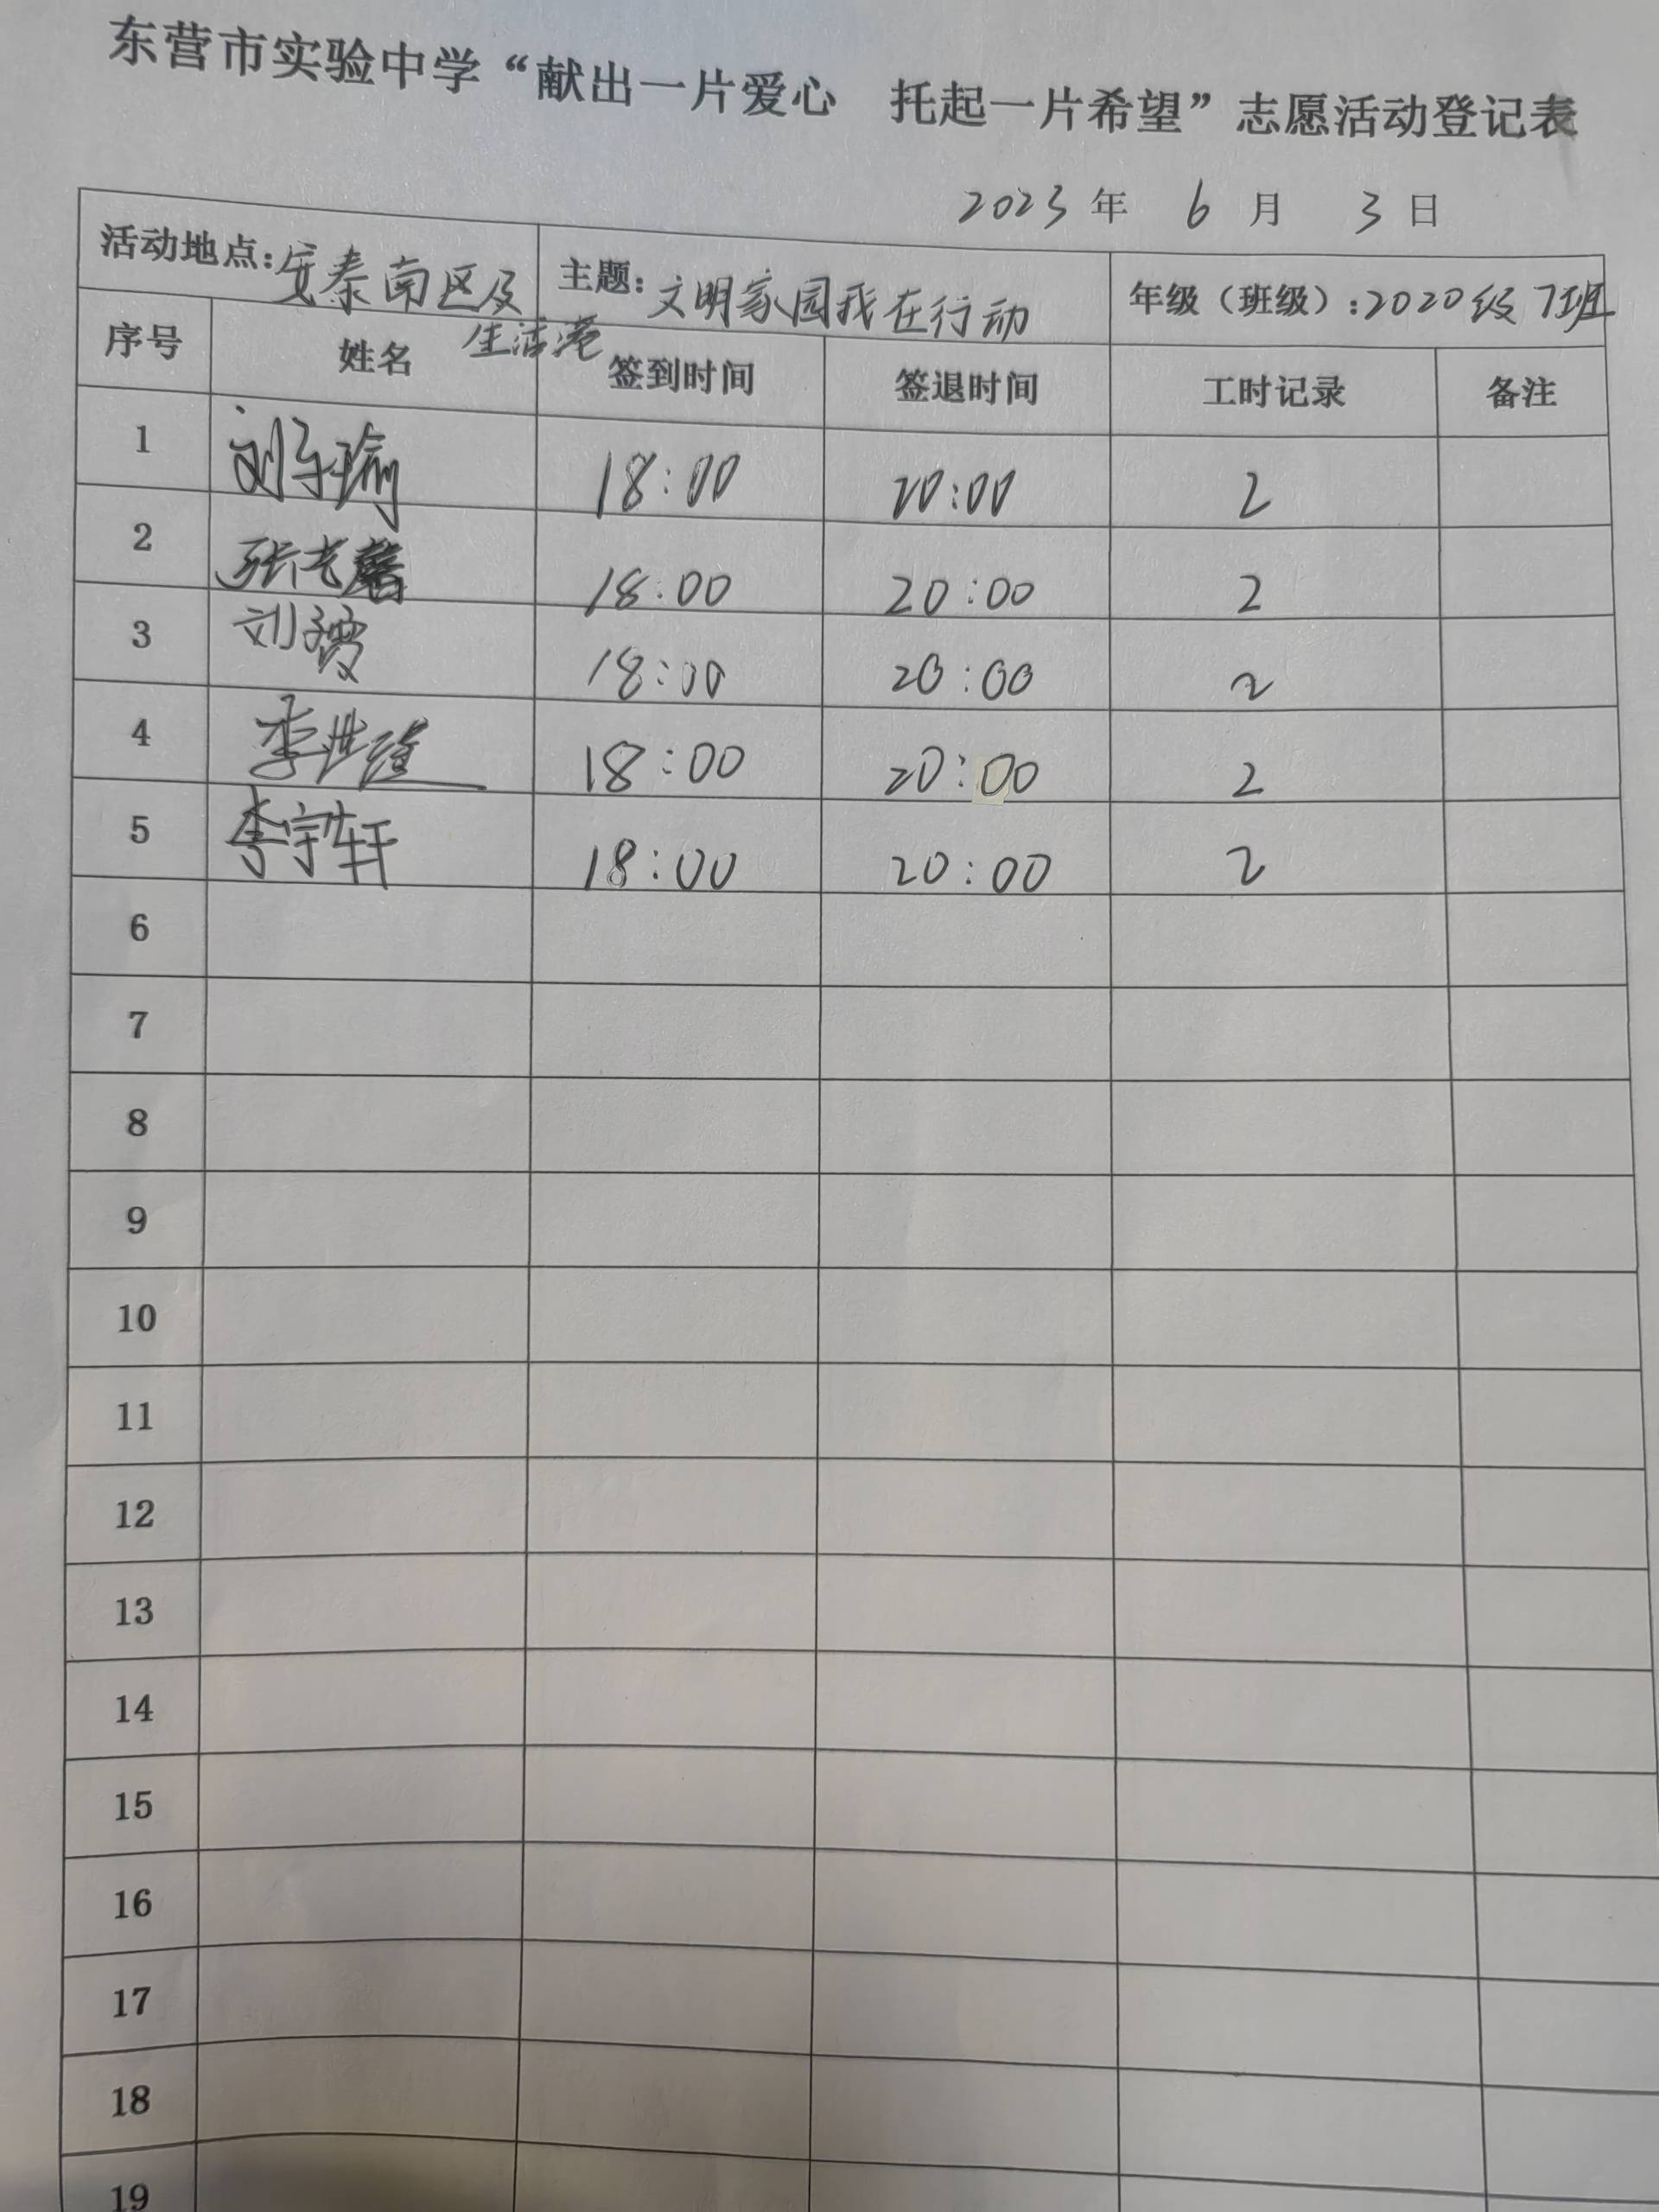 东营市实验中学“献出一片爱心 托起一片希望”志愿活动登记表
2023 年 6 月 3 日
活动地点：安泰南区及生活港 主题：文明家园我在行动 年级（班级）：2020级7班
序号 姓名 签到时间 签退时间 工时记录 备注
1 刘子瑜 18:00 20:00 2
2 张艺馨 18:00 20:00 2
3 刘 18:00 20:00 2
4 李 18:00 20:00 2
5 李宇轩 18:00 20:00 2
6
7
8
9
10
11
12
13
14
15
16
17
18
19